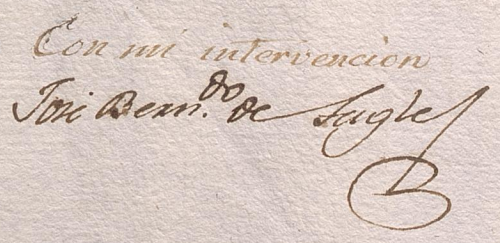 Con mi intervencion
José Bern.do de Tagle